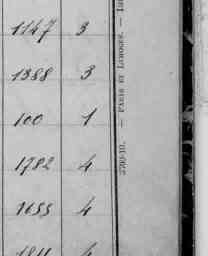 1147 3
1388 3
100 1
1782 4
1655 4
2799-10. — PARIS ET LIMOGES. —